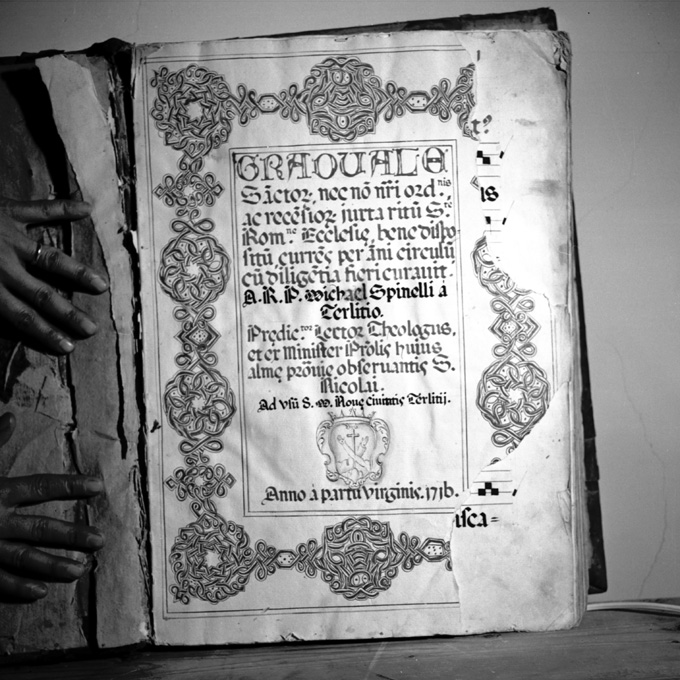 GRADUALE
Sāctor, nec nō nr̄i ord.nis
ac recēsior, juxta ritū S.te
Rom.ne Ecclesię, bene dispo-
sitū, currēs per āni circulū
cū diligētia fieri curavit.
A. R. P. Michael Spinelli à
Terlitio.
Predic.tor Lector Theologus,
et ex Minister Prōlis hujus
almę prōvię observantię S.
Nicolai.
Ad vsū S. M. Nouę Ciuitatis Terlitij.
Anno à partu virginis. 1716.
is
isca-